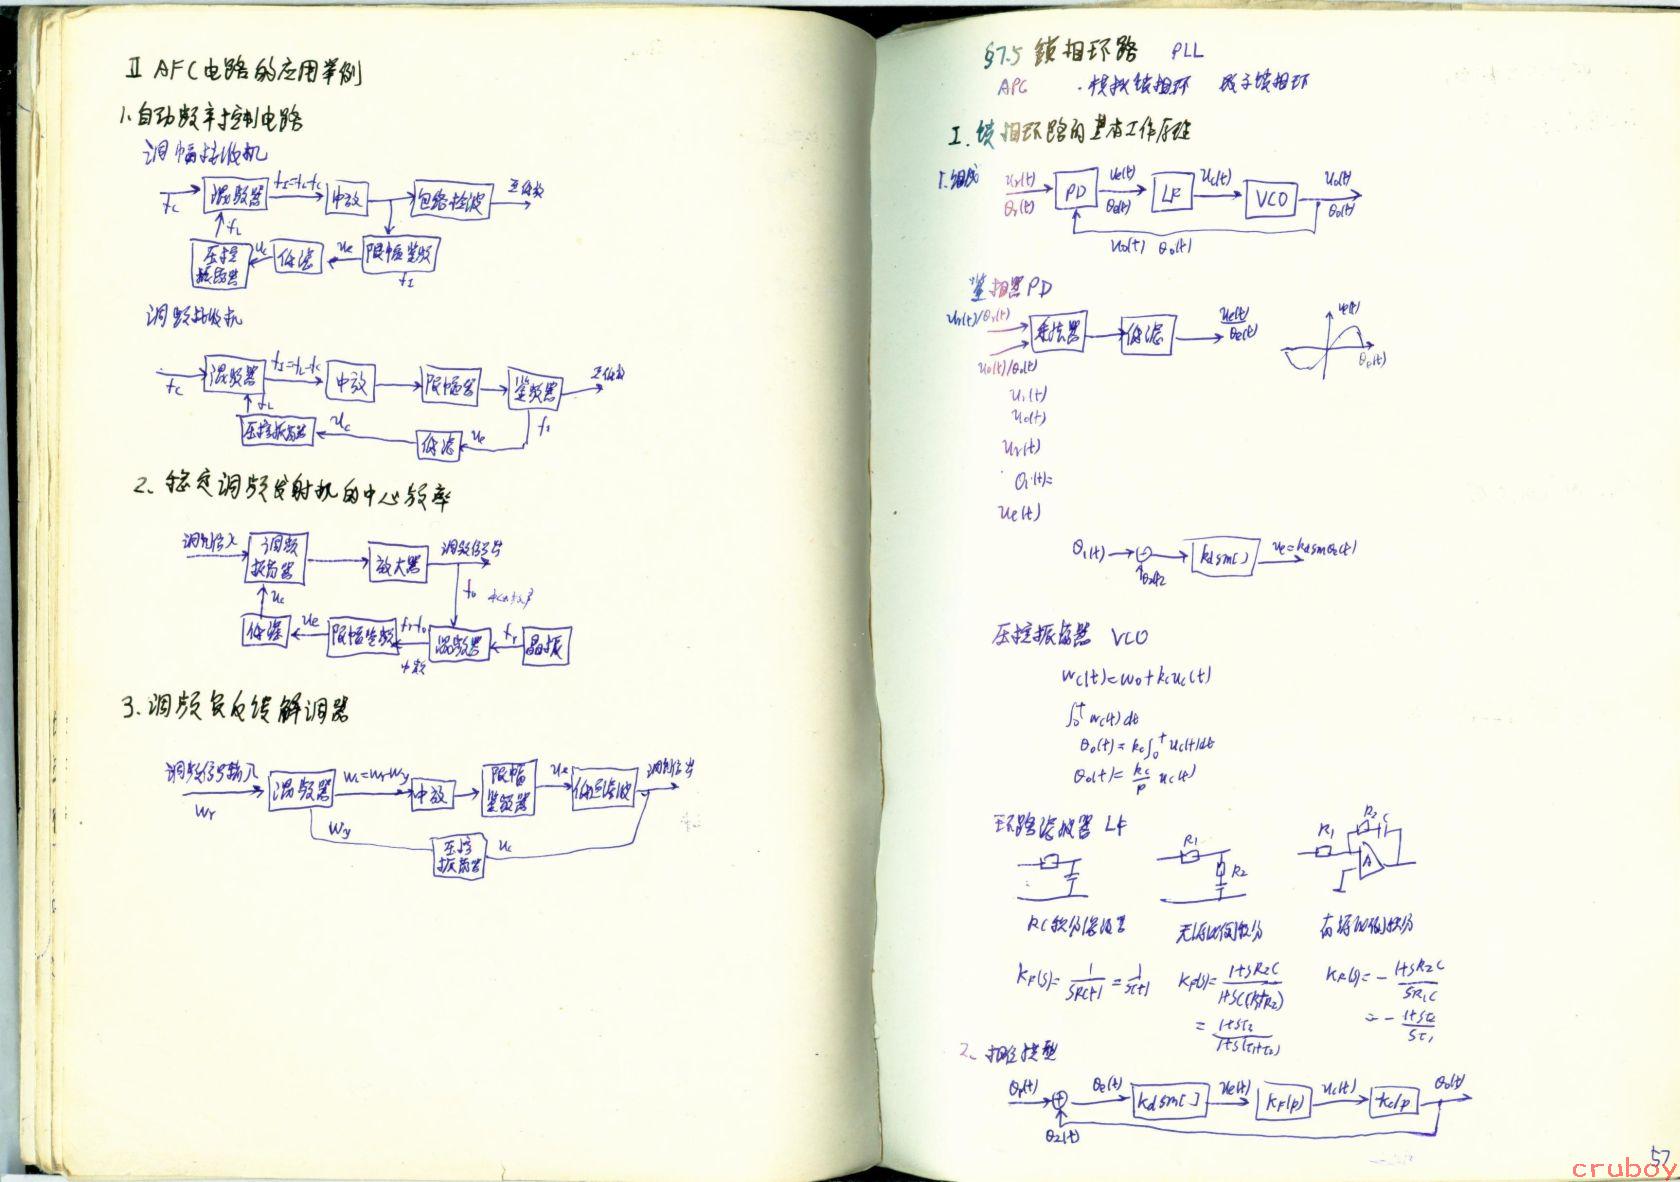 II AFC电路的应用举例
1.自动频率控制电路
调幅接收机
fc 混频器 fI=fL-fc 中放 包络检波 至低放
fL
压控振荡器 uc 低滤 ue 限幅鉴频
fI
调频接收机
fc 混频器 fI=fL-fc 中放 限幅器 鉴频器 至低放
fL
压控振荡器 uc 低滤 ue fI
2、稳定调频发射机的中心频率
调制信入 调频振荡器 放大器 调频信号
f0
uc
低滤 ue 限幅鉴频 fr-f0 混频器 fr 晶振
中频
3.调频负反馈解调器
调频信号输入 混频器 wi=wr-wy 中放 限幅鉴频器 ue 低通滤波 调制信号
wr
wy 压控振荡器 uc
§7.5 锁相环路 PLL
APC ·模拟锁相环 数字锁相环
I.锁相环路的基本工作原理
1.组成 ur(t) θr(t) PD ue(t) θe(t) LF uc(t) VCO uo(t) θo(t)
uo(t) θo(t)
鉴相器PD
ur(t)/θr(t) 乘法器 低滤 ue(t) θe(t)
uo(t)/θo(t)
ue(t) θe(t)
u1(t)
uo(t)
ur(t)
θ1(t)=
ue(t)
θ1(t) kdsin[] ue=kdsinθe(t)
压控振荡器 VCO
wc(t)=wo+kcuc(t)
∫0^t wc(t)dt
θo(t)=kc∫0^t uc(t)dt
θo(t)=kc/p uc(t)
环路滤波器 LF
R1 R2 R1 R2 C A
RC积分滤波器 无源比例积分 有源比例积分
KF(s)=1/(SRC+1)=1/(Sτ+1) KF(s)=(1+SR2C)/(1+SC(R1+R2)) KF(s)=-(1+SR2C)/(SR1C)
=(1+Sτ2)/(1+S(τ1+τ2)) =-(1+Sτ2)/(Sτ1)
2、相位模型
θr(t) θe(t) kdsin[] ue(t) KF(p) uc(t) kc/p θo(t)
θ2(t)
57
cruboy